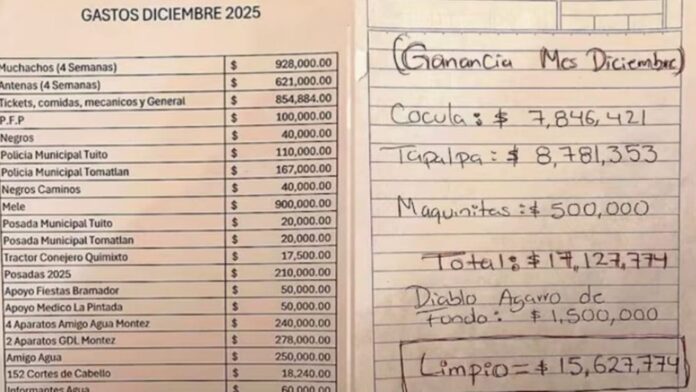 GASTOS DICIEMBRE 2025
Muchachos (4 Semanas) $ 928,000.00
Antenas (4 Semanas) $ 621,000.00
Tickets, comidas, mecanicos y General $ 854,884.00
P.F.P $ 100,000.00
Negros $ 40,000.00
Policia Municipal Tuito $ 110,000.00
Policia Municipal Tomatlan $ 167,000.00
Negros Caminos $ 40,000.00
Mele $ 900,000.00
Posada Municipal Tuito $ 20,000.00
Posada Municipal Tomatlan $ 20,000.00
Tractor Conejero Quimixto $ 17,500.00
Posadas 2025 $ 210,000.00
Apoyo Fiestas Bramador $ 50,000.00
Apoyo Medico La Pintada $ 50,000.00
4 Aparatos Amigo Agua Montez $ 240,000.00
2 Aparatos GDL Montez $ 278,000.00
Amigo Agua $ 250,000.00
152 Cortes de Cabello $ 18,240.00
Informantes Agua $ 60,000.00
(Ganancia Mes Diciembre)
Cocula: $ 7,846,421
Tapalpa: $ 8,781,353
Maquinitas: $ 500,000
Total: $ 17,127,774
Diablo Agarro de
fondo: $ 1,500,000
Limpio = $ 15,627,774